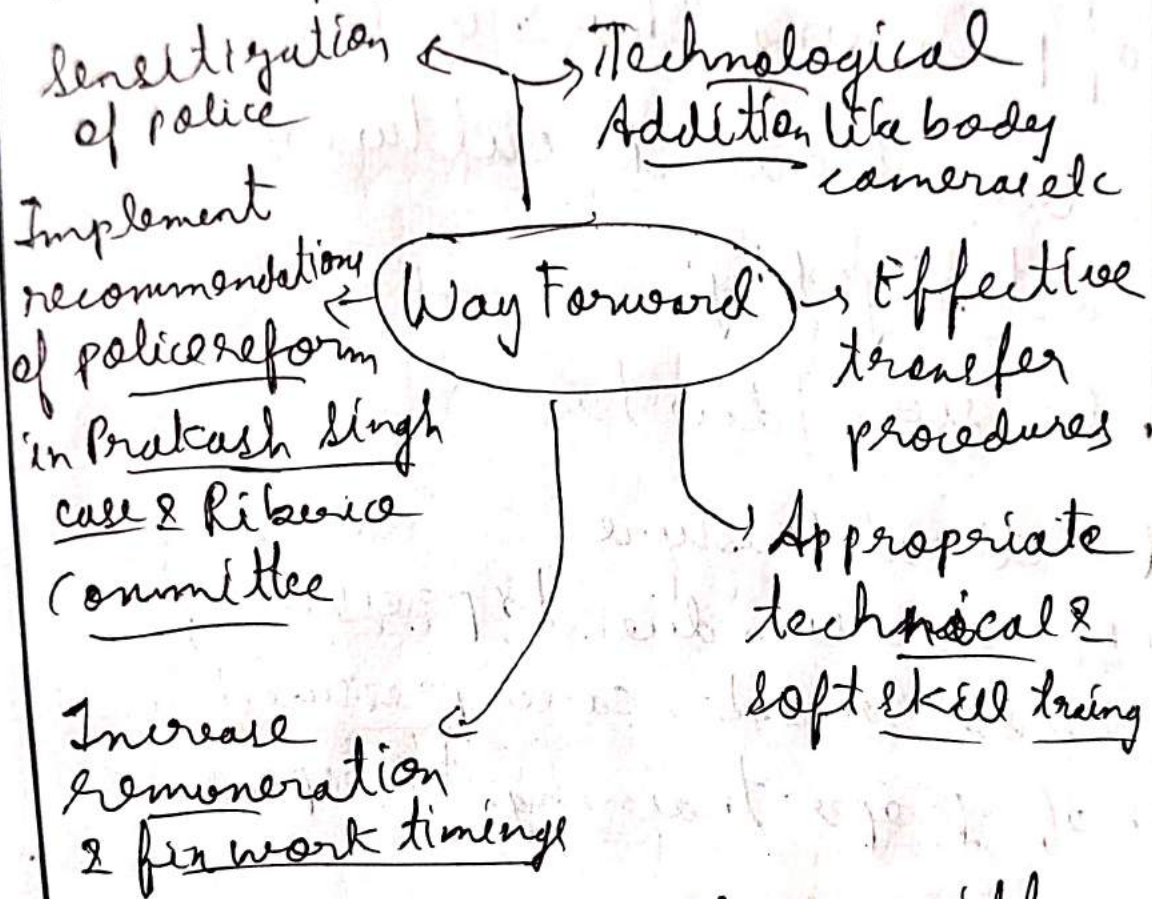 Sensitization
of police
Technological
Addition like body
cameras etc
Implement
recommendations
of police reform
in Prakash Singh
case & Riberio
Committee
Way Forward
Effective
transfer
procedures.
Appropriate
technical &
soft skill traing
Increase
remuneration
& fix work timings